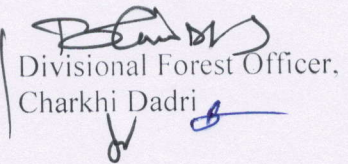 Divisional Forest Officer,
Charkhi Dadri